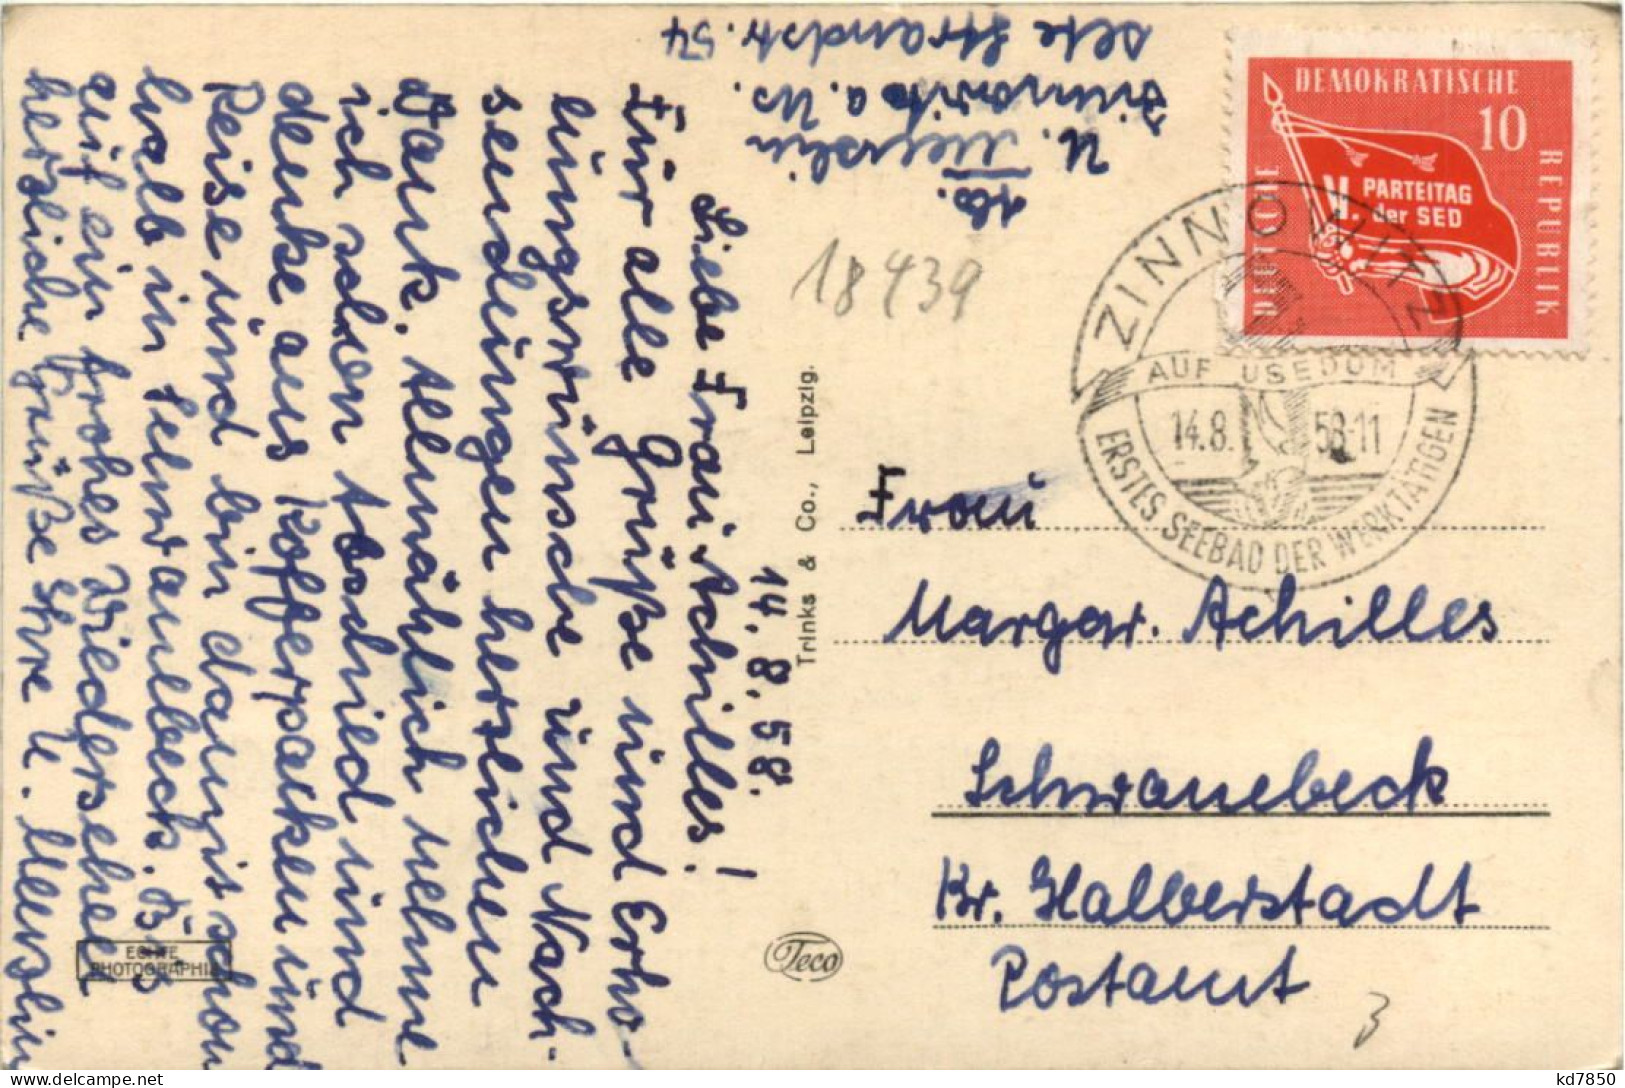 14. 8. 58.
Liebe Frau Achilles!
Für alle Grüße und Erho-
lungswünsche und Nach-
sendungen herzlichen
Dank. Allmählich nehme
ich schon Abschied und
denke ans Kofferpacken und
Reise und bin dann ja schon
bald in Schwanebeck. Bis
auf ein frohes Wiedersehen
herzliche Grüße Ihre U.
Abs.
U.
Zinnowitz a. Us.
Alte Strandstr. 54
18439
DEMOKRATISCHE
10
DEUTSCHE
REPUBLIK
V. PARTEITAG
der SED
ZINNOWITZ
AUF USEDOM
14.8. 58-11
ERSTES SEEBAD DER WERKTÄTIGEN
Frau
Margar. Achilles
Schwanebeck
Kr. Halberstadt
Postamt
3
Trinks & Co., Leipzig.
Teco
ECHTE
PHOTOGRAPHIE
kd7850